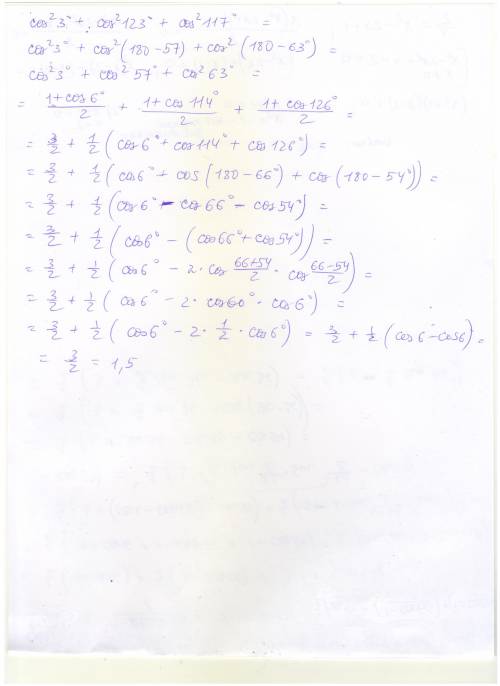 cos²3° + cos²123° + cos²117° =
cos²3° + cos²(180-57) + cos²(180-63°) =
cos²3° + cos²57° + cos²63° =
= (1+cos6°)/2 + (1+cos114°)/2 + (1+cos126°)/2 =
= 3/2 + 1/2 (cos6° + cos114° + cos126°) =
= 3/2 + 1/2 (cos6° + cos(180-66°) + cos(180-54°)) =
= 3/2 + 1/2 (cos6° - cos66° - cos54°) =
= 3/2 + 1/2 (cos6° - (cos66° + cos54°)) =
= 3/2 + 1/2 (cos6° - 2·cos (66+54)/2 · cos (66-54)/2) =
= 3/2 + 1/2 (cos6° - 2·cos60°·cos6°) =
= 3/2 + 1/2 (cos6° - 2·1/2·cos6°) = 3/2 + 1/2 (cos6°-cos6) =
= 3/2 = 1,5